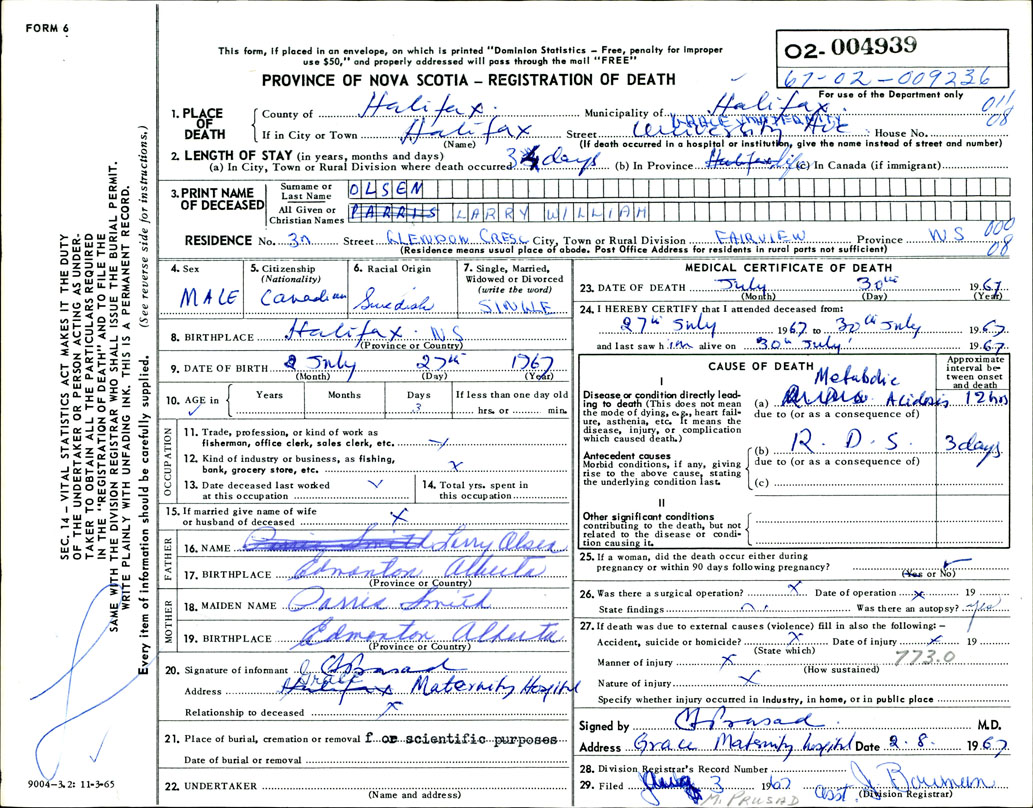 FORM 6
This form, if placed in an envelope, on which is printed "Dominion Statistics – Free, penalty for improper
use $50," and properly addressed will pass through the mail "FREE"
PROVINCE OF NOVA SCOTIA – REGISTRATION OF DEATH
02- 004939
67-02-009236
For use of the Department only
011
08
1. PLACE OF DEATH
County of Halifax. Municipality of Halifax.
GRACE MATERNITY
If in City or Town Halifax Street University Ave House No.
(Name) (If death occurred in a hospital or institution, give the name instead of street and number)
2. LENGTH OF STAY (in years, months and days)
(a) In City, Town or Rural Division where death occurred 3 days (b) In Province Halifax life (c) In Canada (if immigrant)
3. PRINT NAME OF DECEASED
Surname or Last Name OLSEN
All Given or Christian Names PARRIS LARRY WILLIAM
000
08
RESIDENCE No. 30 Street GLENDON CRESC City, Town or Rural Division FAIRVIEW Province NS
(Residence means usual place of abode. Post Office Address for residents in rural parts not sufficient)
4. Sex
MALE
5. Citizenship
(Nationality)
Canadian
6. Racial Origin
Swedish
7. Single, Married,
Widowed or Divorced
(write the word)
SINGLE
8. BIRTHPLACE Halifax. N.S
(Province or Country)
9. DATE OF BIRTH July 27th 1967
(Month) (Day) (Year)
10. AGE in Years Months Days If less than one day old
3 hrs. or min.
OCCUPATION
11. Trade, profession, or kind of work as
fisherman, office clerk, sales clerk, etc.
12. Kind of industry or business, as fishing,
bank, grocery store, etc. x
13. Date deceased last worked
at this occupation
14. Total yrs. spent in
this occupation
15. If married give name of wife
or husband of deceased x
FATHER
16. NAME Parris Smith Larry Olsen
17. BIRTHPLACE Edmonton Alberta
(Province or Country)
MOTHER
18. MAIDEN NAME Parris Smith
19. BIRTHPLACE Edmonton Alberta
(Province or Country)
20. Signature of informant Prasad
Grace
Address Halifax Maternity Hospital
Relationship to deceased x
21. Place of burial, cremation or removal for scientific purposes
Date of burial or removal
22. UNDERTAKER
(Name and address)
MEDICAL CERTIFICATE OF DEATH
23. DATE OF DEATH July 30th 1967
(Month) (Day) (Year)
24. I HEREBY CERTIFY that I attended deceased from:
27th July 1967 to 30th July 1967
and last saw him alive on 30th July 1967
CAUSE OF DEATH
Approximate interval between onset and death
I
Disease or condition directly leading to death (This does not mean the mode of dying, e.g., heart failure, asthenia, etc. It means the disease, injury, or complication which caused death.)
Metabolic
(a) Acidosis 12 hrs
due to (or as a consequence of)
(b) R. D. S. 3 days
due to (or as a consequence of)
(c)
Antecedent causes
Morbid conditions, if any, giving
rise to the above cause, stating
the underlying condition last.
II
Other significant conditions
contributing to the death, but not
related to the disease or condition causing it.
25. If a woman, did the death occur either during
pregnancy or within 90 days following pregnancy?
(Yes or No)
26. Was there a surgical operation? x Date of operation x 19
State findings Was there an autopsy? yes
27. If death was due to external causes (violence) fill in also the following: –
Accident, suicide or homicide? x Date of injury x 19
(State which) 773.0
Manner of injury x
(How sustained)
Nature of injury x
Specify whether injury occurred in Industry, in home, or in public place
Signed by Prasad M.D.
Address Grace Maternity hospital Date 2.8. 1967
28. Division Registrar's Record Number
29. Filed Aug 3 1967 asst J. Bowman
M. PRUSAD (Division Registrar)
SEC. 14 – VITAL STATISTICS ACT MAKES IT THE DUTY
OF THE UNDERTAKER OR PERSON ACTING AS UNDERTAKER TO OBTAIN ALL THE PARTICULARS REQUIRED
IN THE "REGISTRATION OF DEATH" AND TO FILE THE
SAME WITH THE DIVISION REGISTRAR WHO SHALL ISSUE THE BURIAL PERMIT.
WRITE PLAINLY WITH UNFADING INK. THIS IS A PERMANENT RECORD.
Every item of information should be carefully supplied. (See reverse side for instructions.)
9004-3.2: 11-3-65